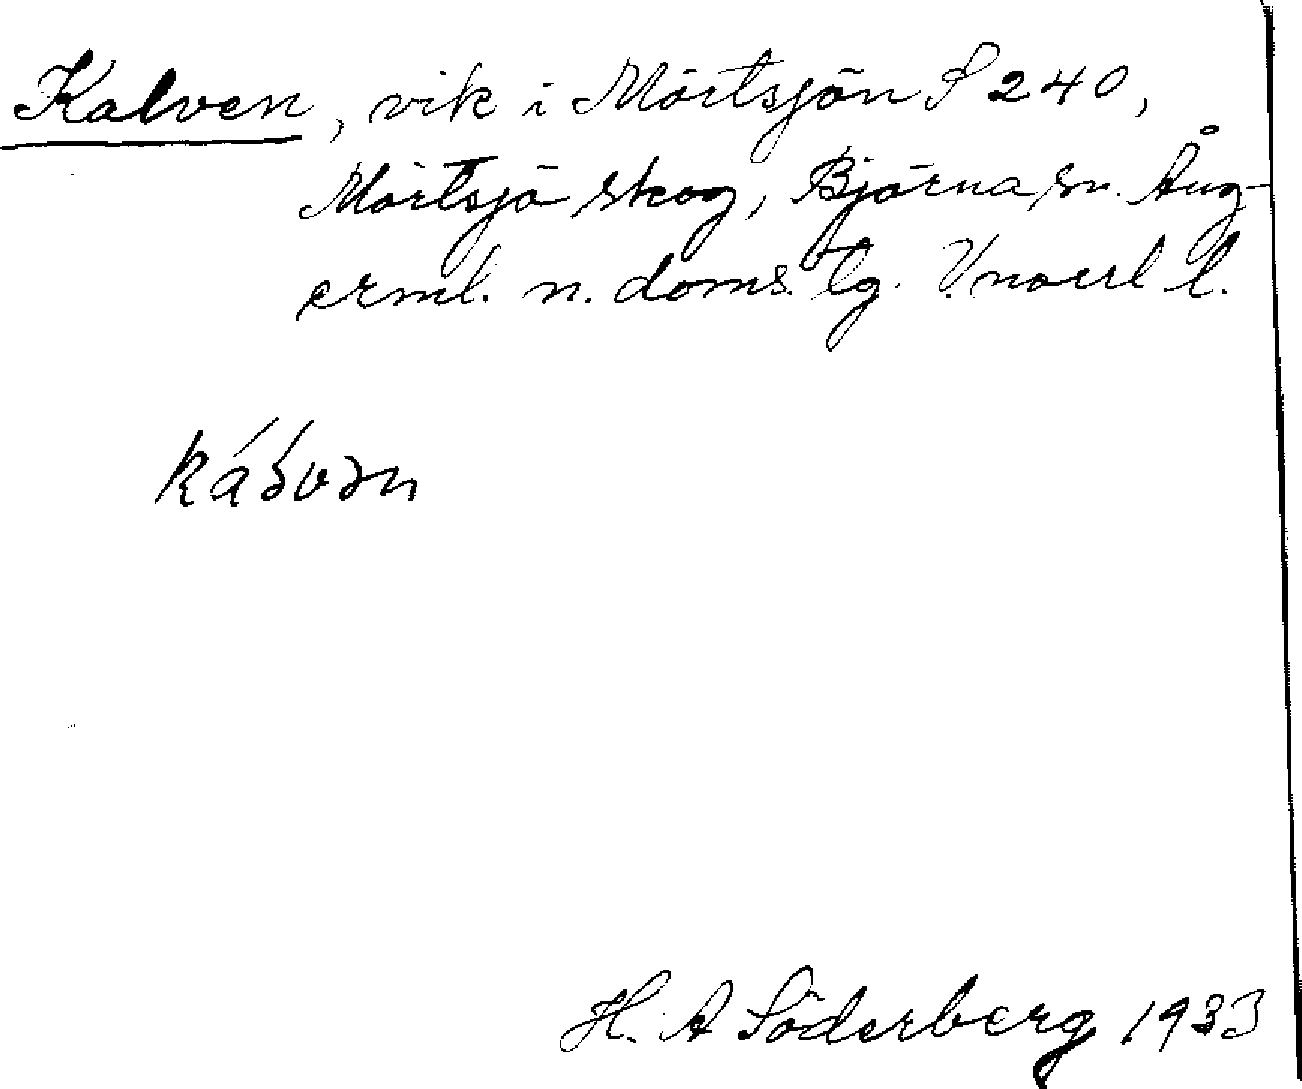 Kalven, vik i Mörtsjön S 240,
Mörtsjö skog, Björna sn. Ång-
erml. n. doms. lg. V.norrl l.
H. A Söderberg 1933